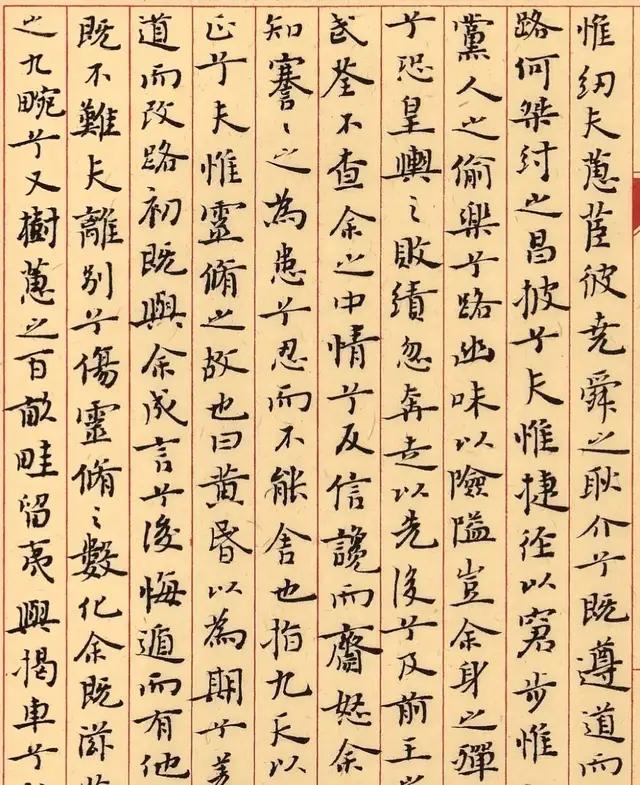 惟紉夫蕙茝彼堯舜之耿介兮既遵道而
路何桀紂之昌披兮夫惟捷徑以窘步惟
黨人之偷樂兮路幽昧以險隘豈余身之殫
兮恐皇輿之敗績忽奔走以先後兮及前王
武荃不查余之中情兮反信讒而齋怒余
知謇〻之為患兮忍而不能舍也指九天以
正兮夫惟靈脩之故也曰黃昏以為期兮羌
道而改路初既與余成言兮後悔遁而有他
既不難夫離別兮傷靈脩之數化余既滋
之九畹兮又樹蕙之百畝畦留夷與揭車兮